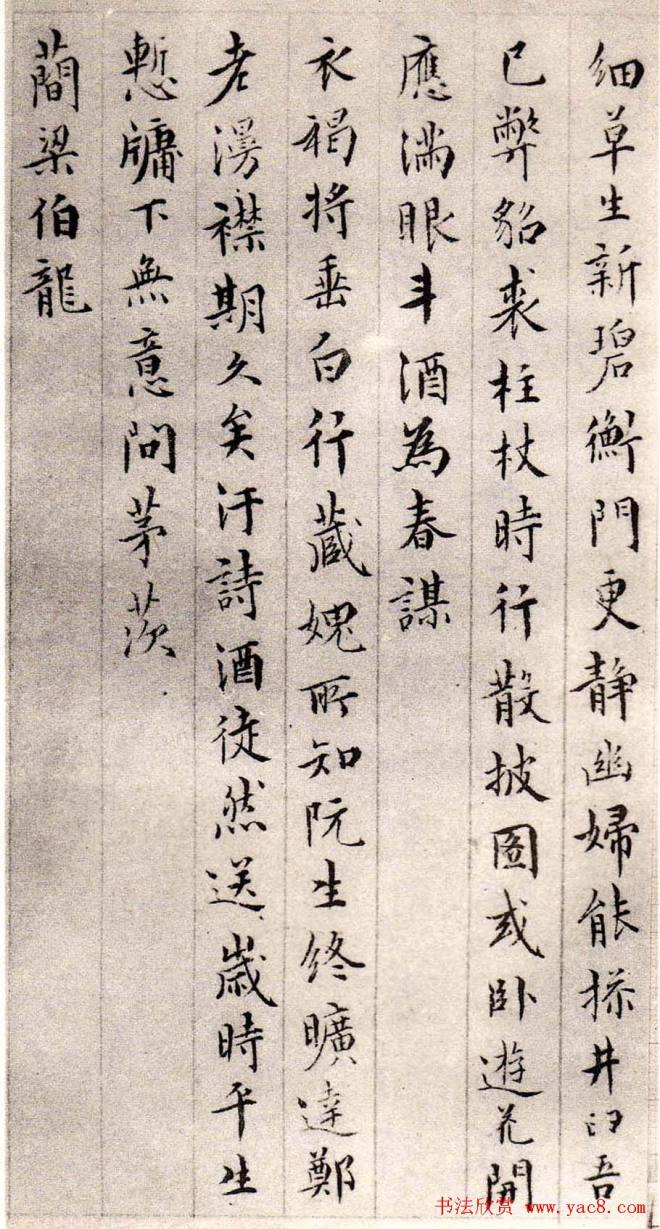 細草生新碧衡門更靜幽婦能操井臼吾
已弊貂裘柱杖時行散披圖或卧遊花開
應滿眼斗酒為春謀
衣褐將垂白行藏媿所知阮生終曠達鄭
老漫襟期久矣汙詩酒徒然送歲時平生
慙牖下無意問茅茨
蕳梁伯龍
书法欣赏 www.yac8.com